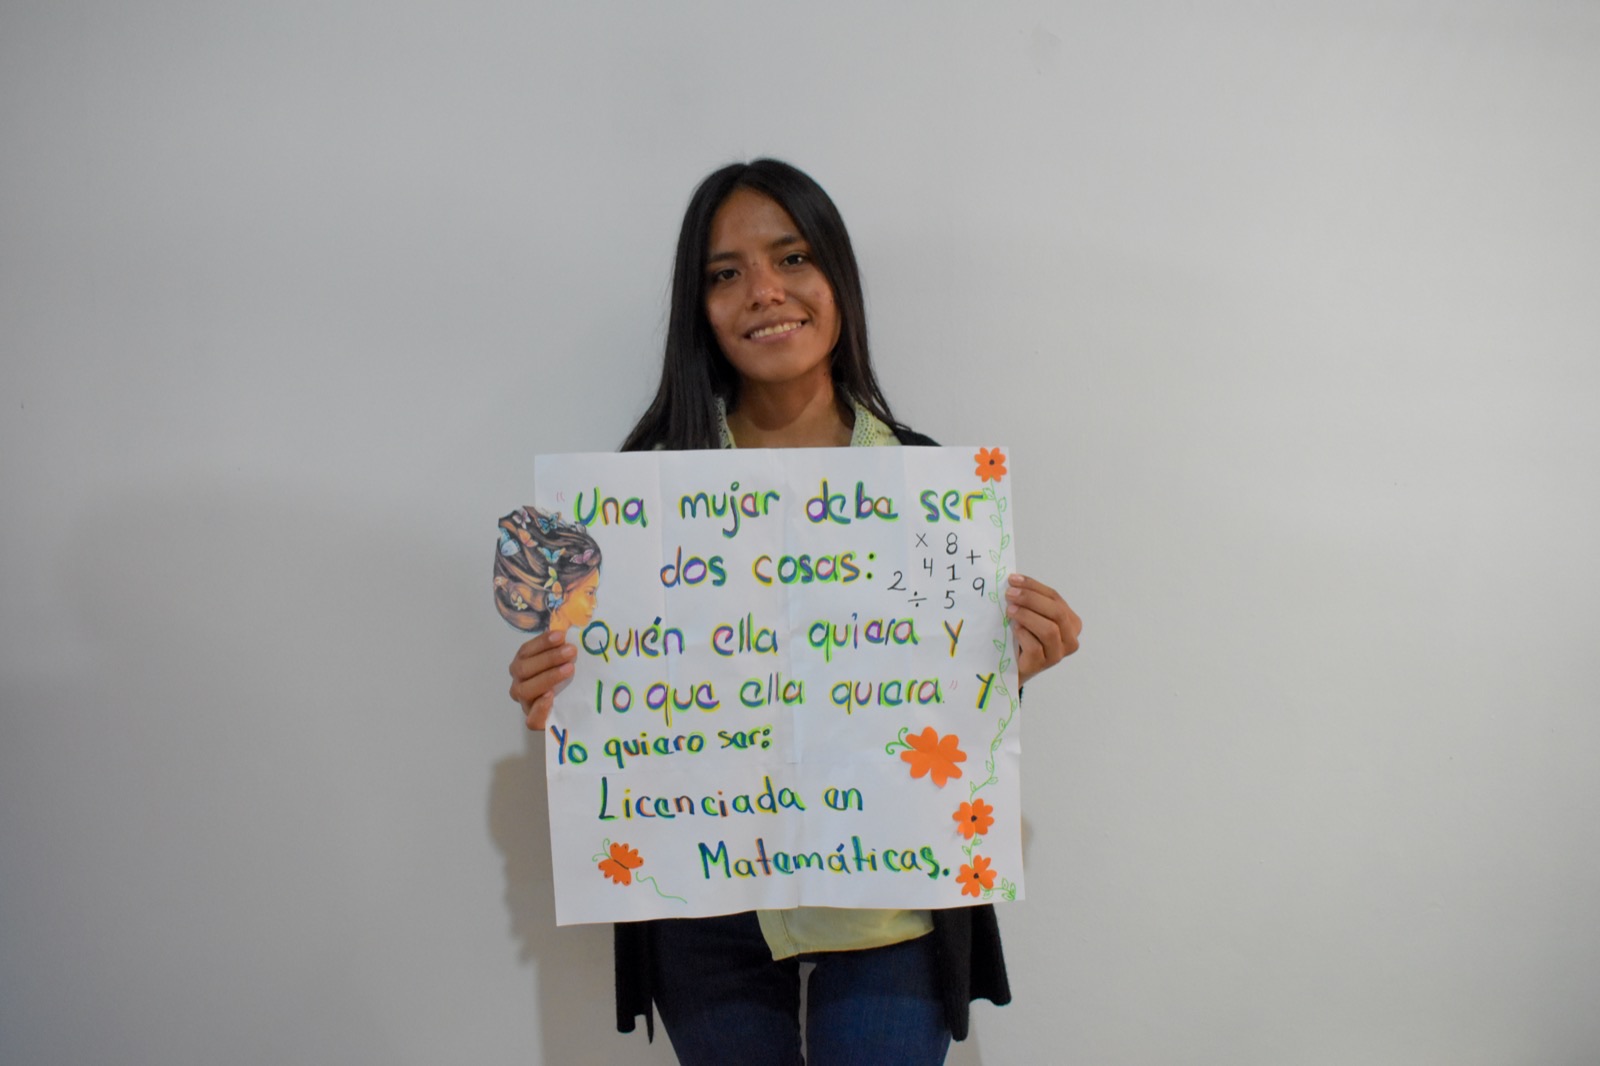 "Una mujer debe ser
dos cosas:
x 8 +
2 4 1 9
÷ 5
Quién ella quiera y
lo que ella quiera" y
Yo quiero ser:
Licenciada en
Matemáticas.